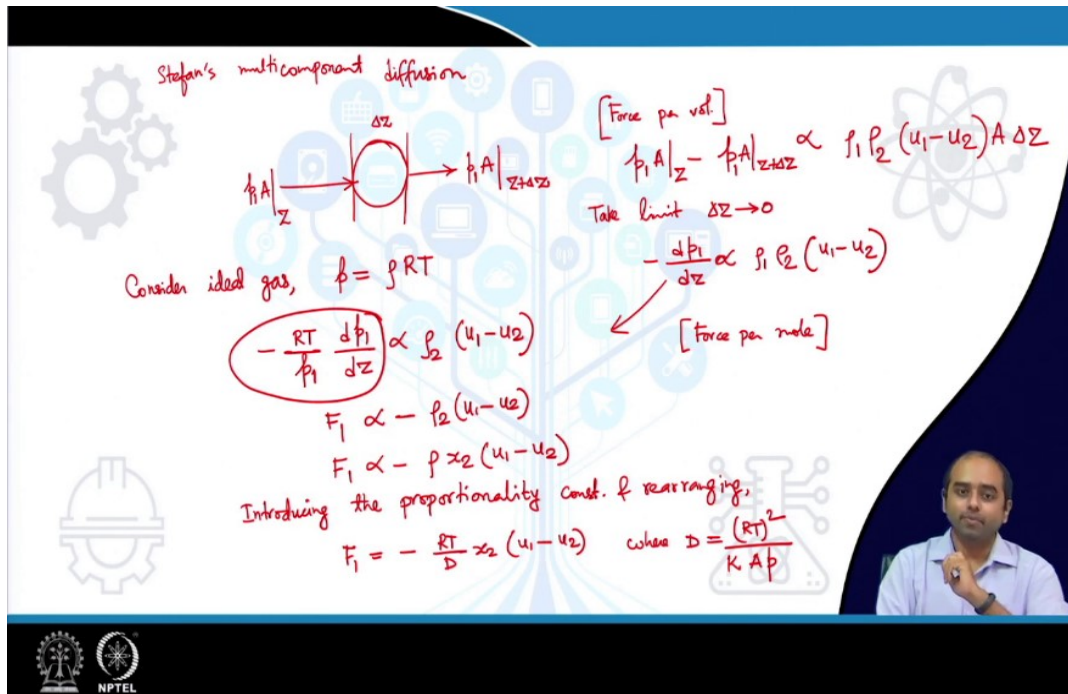 Stefan's multicomponent diffusion
ΔZ
p₁A|_Z
p₁A|_{Z+ΔZ}
[Force per vol.]
p₁A|_Z - p₁A|_{Z+ΔZ} ∝ ρ₁ρ₂ (u₁-u₂) A ΔZ
Take limit ΔZ→0
- dp₁/dz ∝ ρ₁ρ₂ (u₁-u₂)
[Force per mole]
Consider ideal gas, p = ρRT
- RT/p₁ dp₁/dz ∝ ρ₂ (u₁-u₂)
F₁ ∝ - ρ₂ (u₁-u₂)
F₁ ∝ - ρ x₂ (u₁-u₂)
Introducing the proportionality const. & rearranging,
F₁ = - RT/D x₂ (u₁-u₂) where D = (RT)²/K A p
NPTEL